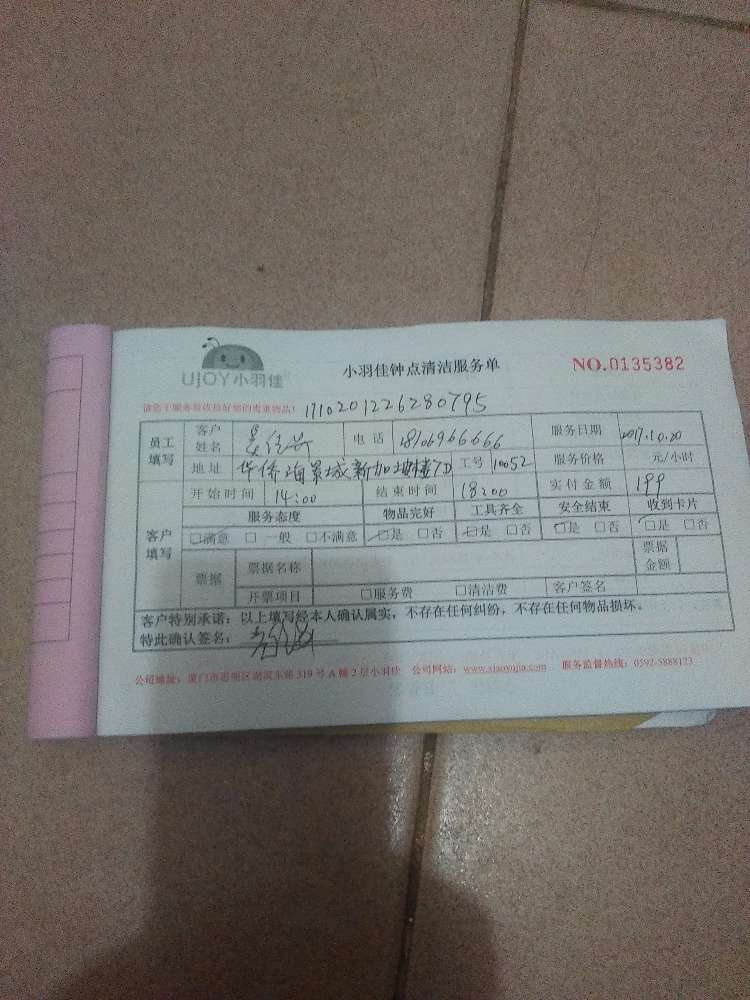 UJOY小羽佳
小羽佳钟点清洁服务单
NO.0135382
请您于服务前收捡好您的贵重物品!
1710201226280795
员工填写 客户姓名 电话 18106966666 服务日期 2017.10.20
地址 华侨海景城新加坡楼7D 工号 10052 服务价格 元/小时
开始时间 14:00 结束时间 18:00 实付金额 199
客户填写 服务态度 物品完好 工具齐全 安全结束 收到卡片
□满意 □一般 □不满意 □是 □否 □是 □否 □是 □否 □是 □否
票据 票据名称 票据金额
开票项目 □服务费 □清洁费 客户签名
客户特别承诺:以上填写经本人确认属实,不存在任何纠纷,不存在任何物品损坏。
特此确认签名:
公司地址:厦门市思明区湖滨东路319号A幢2层小羽佳 公司网站:www.xiaoyujia.com 服务监督热线:0592-5888123